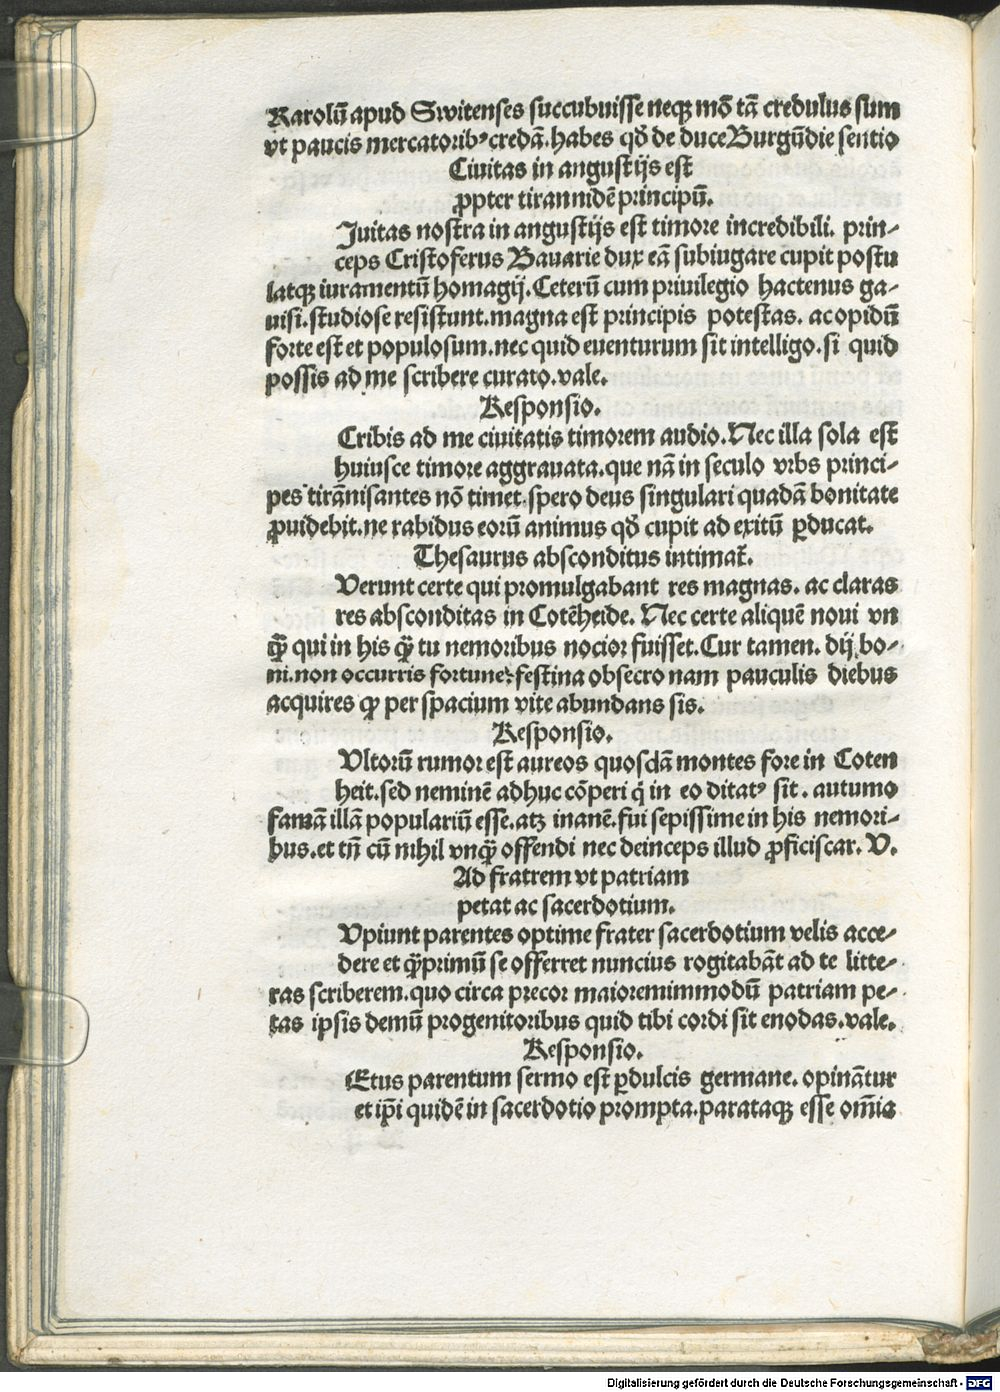 Karolū apud Switenses succubuisse neqꝫ mō tā credulus sum
vt paucis mercatoribꝰ credā. habes qđ de duce Burgūdie sentio
Ciuitas in angustijs est
ꝓpter tirannidē principū.
Iuitas nostra in angustijs est timore incredibili. prin-
ceps Cristoferus Bauarie dux eā subiugare cupit postu
latqꝫ iuramentū homagij. Ceterū cum priuilegio hactenus ga-
uisi. studiose resistunt. magna est principis potestas. ac opidū
forte est et populosum. nec quid euenturum sit intelligo. si quid
possis ad me scribere curato. vale.
Responsio.
Cribis ad me ciuitatis timorem audio. Nec illa sola est
huiusce timore aggrauata. que nā in seculo vrbs princi-
pes tirānisantes nō timet. spero deus singulari quadā bonitate
ꝓuidebit. ne rabidus eorū animus qđ cupit ad exitū ꝑducat.
Thesaurus absconditus intimat̄.
Verunt certe qui promulgabant res magnas. ac claras
res absconditas in Cotēheide. Nec certe aliquē noui vn
qꝫ̄ qui in his qꝫ̄ tu nemoribus nocior fuisset. Cur tamen. dij bo-
ni. non occurris fortune? festina obsecro nam pauculis diebus
acquires ꝙ per spacium vite abundans sis.
Responsio.
Vltorū rumor est aureos quosdā montes fore in Coten
heit. sed neminē adhuc cōperi q̇ in eo ditatꝰ sit. autumo
famā illā populariū esse. atꝫ inanē. fui sepissime in his nemori-
bus. et tn̄ cū nihil vnqꝫ̄ offendi nec deinceps illud ꝓficiscar. V.
Ad fratrem vt patriam
petat ac sacerdotium.
Vpiunt parentes optime frater sacerdotium velis acce-
dere et qꝫ̄primū se offerret nuncius rogitabāt ad te litte-
ras scriberem. quo circa precor maioremimmodū patriam pe-
tas ipsis demū progenitoribus quid tibi cordi sit enodas. vale.
Responsio.
Etus parentum sermo est ꝑdulcis germane. opināntur
et ip̄i quidē in sacerdotio prompta. parataqꝫ esse om̄ia
Digitalisierung gefördert durch die Deutsche Forschungsgemeinschaft - DFG